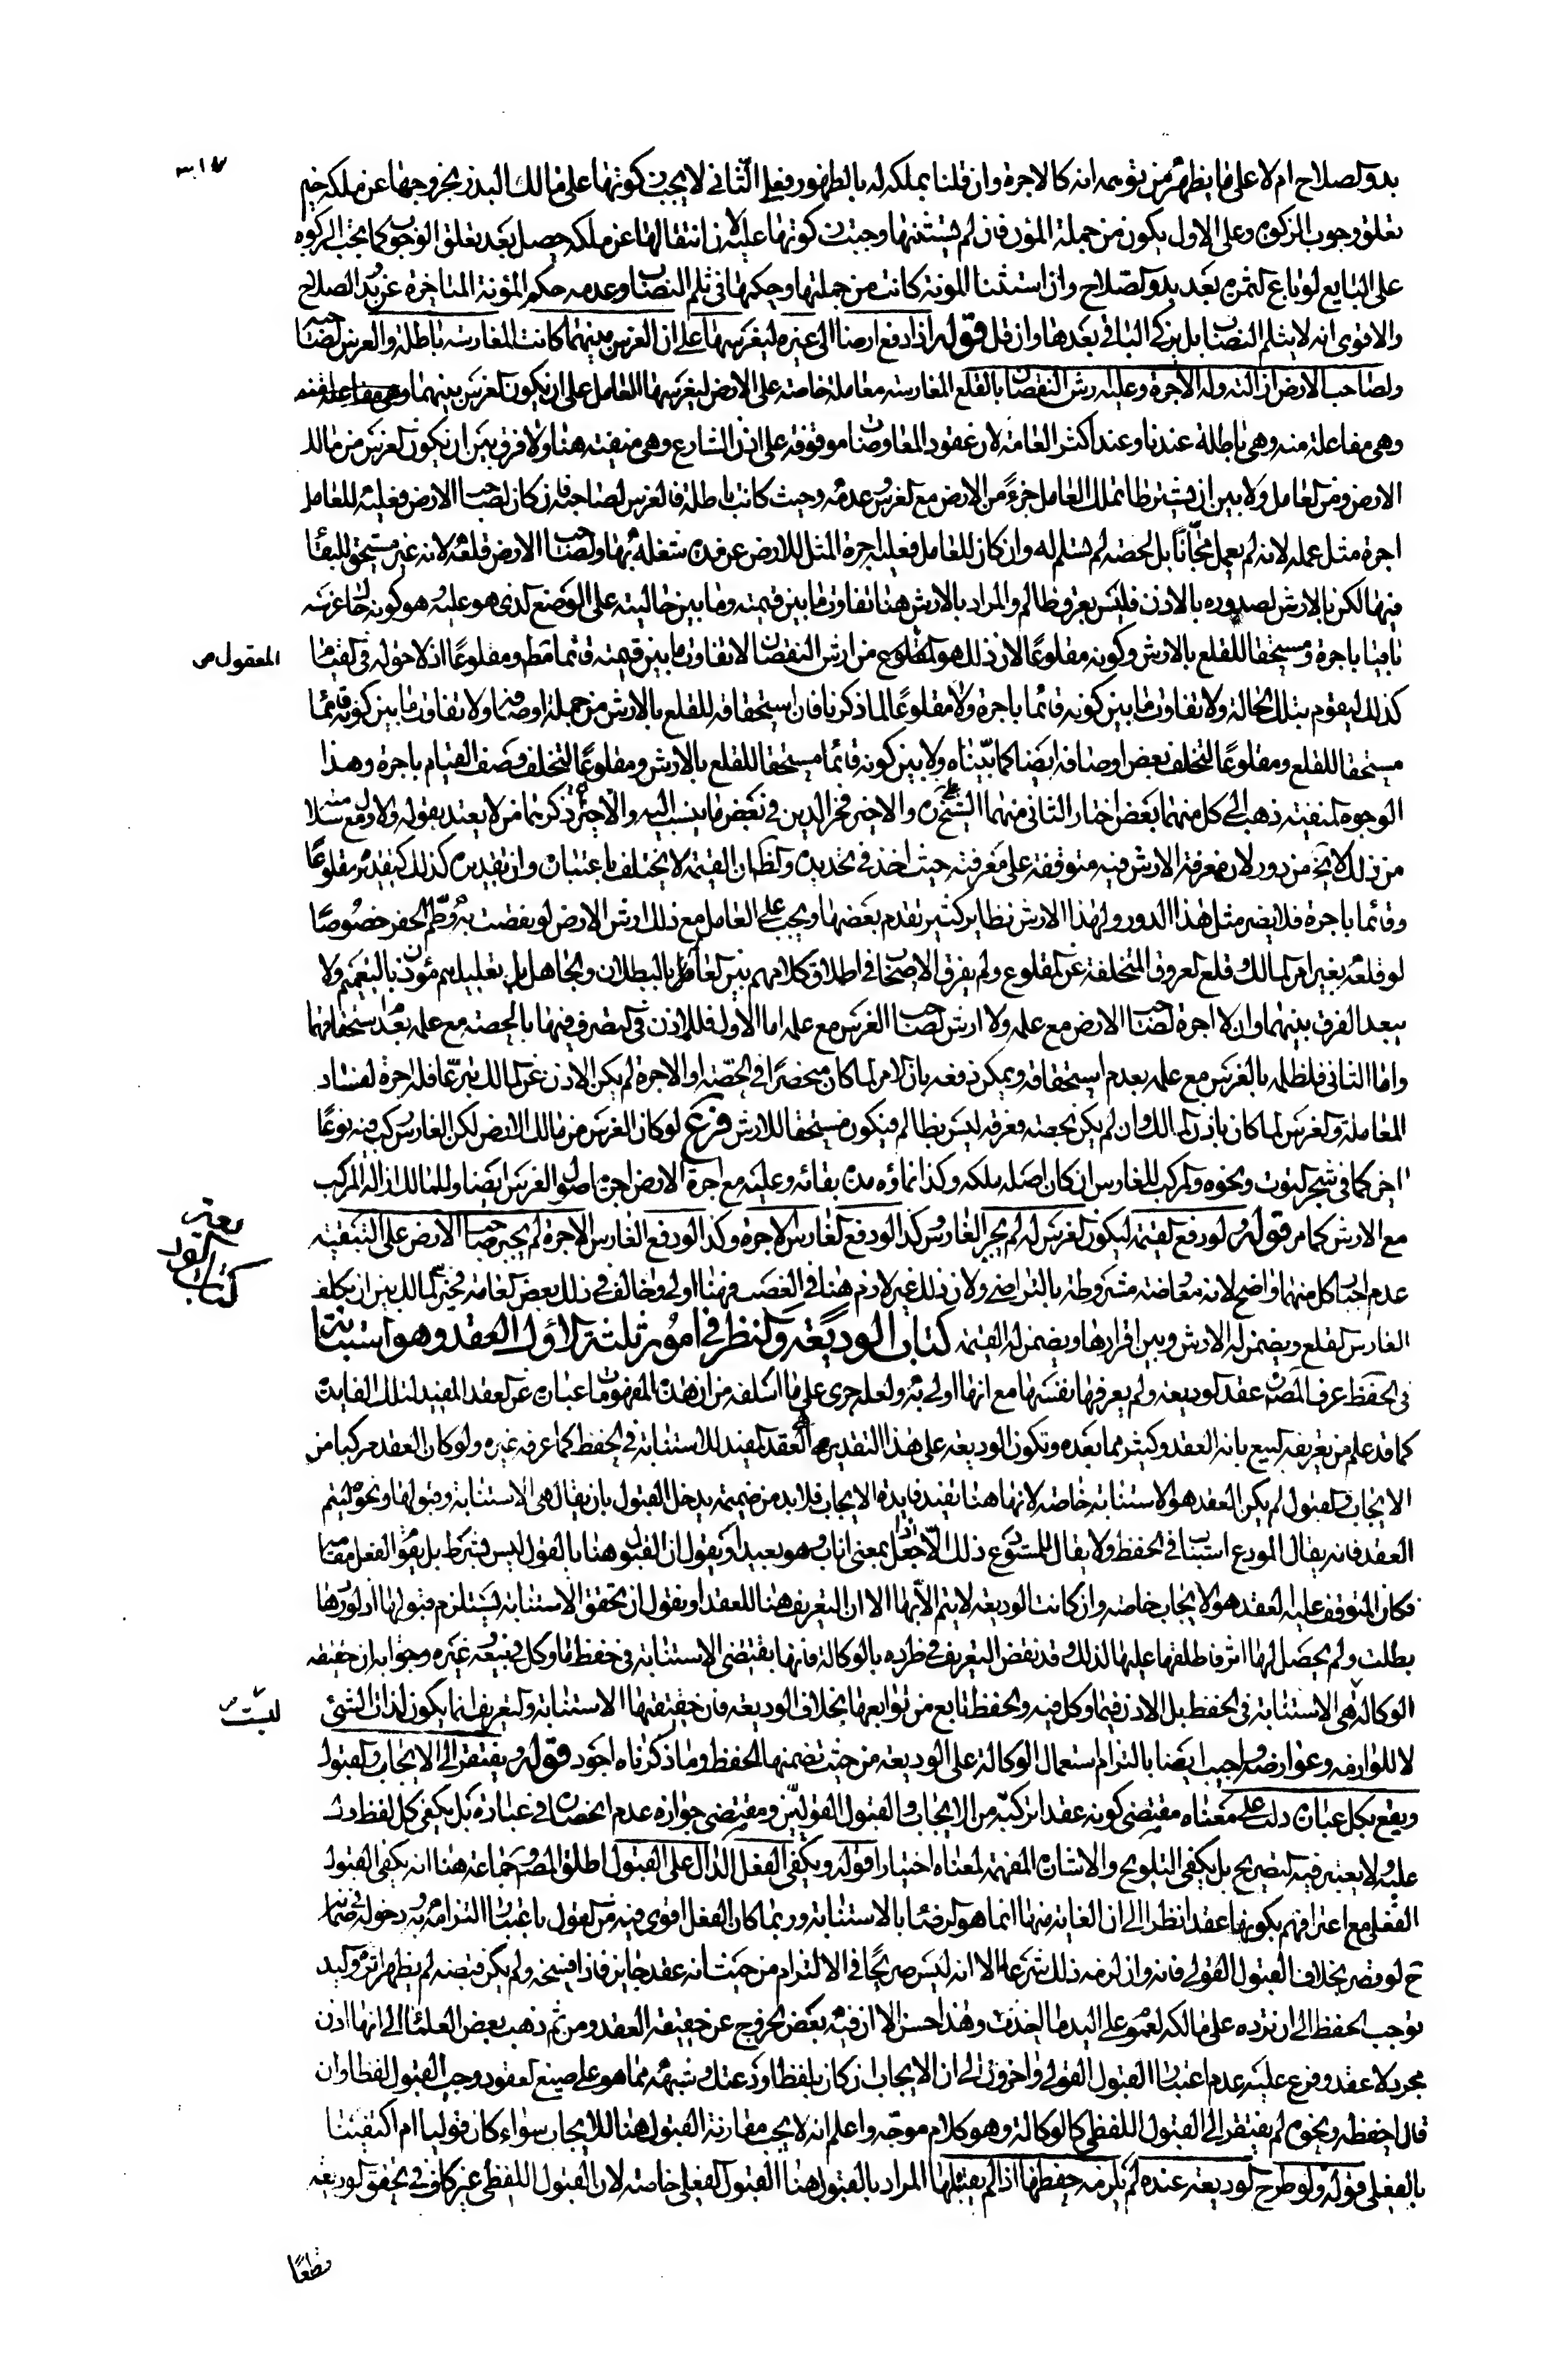 ٣١٧
بدو الصلاح ام لا على ما يظهر من توهمه انه كالاجرة وان قلنا بملكه له بالظهور فعلى الثاني لا يجب زكوتها على مالك البذر بخروجها عن ملكه حين
تعلق وجوب الزكوة وعلى الاول يكون من جملة المؤن فان لم نستثنها وجبت زكوتها عليه لان انتقالها عن ملكه حصل بعد تعلق الوجوب كما يجب الزكوة
على البايع لو باع الثمرة بعد بدو الصلاح وان استثنينا المؤنة كانت من جملتها وحكمها في ثلم النصاب وعدمه حكم المؤنة المتاخرة عن بدو الصلاح
والاقوى انه لا يثلم النصاب بل يزكى الباقي بعدها وان قل قوله اذا دفع ارضا الى غيره ليغرسها على ان الغرس بينهما كانت المغارسة باطلة والغرس لصاحبه
ولصاحب الارض ازالته وله الاجرة وعليه ارش النقصان بالقلع المغارسة معاملة خاصة على الارض ليغرسها العامل على ان يكون الغرس بينهما
وهي مفاعلة منه وهي باطلة عندنا وعند اكثر العامة لان عقود المعاوضات موقوفة على اذن الشارع وهي منفية هنا ولا فرق بين ان يكون الغرس من مالك
الارض ومن العامل ولا بين ان يشترطا تملك العامل جزءً من الارض مع الغرس وعدمه وحيث كانت باطلة فالغرس لصاحبه فان كان لصاحب الارض فعليه للعامل
اجرة مثل عمله لانه لم يعمل مجّانًا بل لحصة لم تسلم له وان كان للعامل فعليه اجرة المثل للارض عن مدة شغله بها ولصاحب الارض قلعه لانه غير مستحق للبقاء
فيها لكن بالارش لصدوره بالاذن فليس بعرق ظالم والمراد بالارش هنا تفاوت ما بين قيمته وما بين حالتيه على الوضع الذي هو عليه هو كونه حال غرسه
ثابتا باجرة ومستحقا للقلع بالارش وكونه مقلوعًا لان ذلك هو من ارش النقصان لا تفاوت ما بين قيمته قائما مطلقا ومقلوعًا اذ لا حق له في القيام
المعقول ص
كذلك ليقوم بتلك الحالة ولا تفاوت ما بين كونه قائما باجرة ولا مقلوعًا لما ذكرنا فان استحقاقه للقلع بالارش من جملة اوصافه ولا تفاوت ما بين كونه قائما
مستحقا للقلع ومقلوعًا لتخلف بعض اوصافه ايضا كما بيّناه ولا بين كونه قائما مستحقا للقلع بالارش ومقلوعًا لتخلف وصف القيام باجرة وهذا
الوجوه المنفية ذهب الى كل منها بعض اختار الثاني منهما الشيخ علي ره والاخير فخر الدين في بعض ما ينسب اليه والاخيرين ذكرهما من لا يعتد بقوله والاول مع سلامته
من ذلك لا يخ من دور لان معرفة الارش فيه متوقفة على معرفته حيث اخذ في تحديده والظ ان القيمة لا يختلف باعتباره وان تقديره كذلك كتقديره مقلوعًا
وقائما باجرة فلا يضر مثل هذا الدور ولهذا الارش نظاير كثير تقدم بعضها ويجب على العامل مع ذلك ارش الارض لو نقصت به وطمّ الحفر خصوصًا
لو قلعه بغير امر المالك وقلع العروق المتخلفة عن المقلوع ولم يفرق الاصحاب في اطلاق كلامهم بين العالم بالبطلان والجاهل بل تعليلهم مؤذن بالتعميم ولا
يبعد الفرق بينهما وان لا اجرة لصاحب الارض مع علمه ولا ارش لصاحب الغرس مع علمه اما الاول فللاذن في التصرف فيها بالحصة مع علمه بعدم استحقاقها
واما الثاني فلظلمه بالغرس مع علمه بعدم استحقاقه ويمكن دفعه بان الامر لما كان منحصرًا في الحصّة او الاجرة لم يكن الاذن من المالك تبرّعا فله اجرة لفساد
المعاملة والغرس لما كان باذن المالك وان لم يكن بحصته فعرقه ليس بظالم فيكون مستحقا للارش فرع لو كان الغرس من مالك الارض لكن الغارس ركب فيه نوعًا
اخر كما في شجر التوت ونحوه فالمركب للغارس ان كان اصله ملكه وكذا نماؤه مدة بقائه وعليه مع اجرة الارض اجرة اصول الغرس ايضا وللمالك ازالة المركب
مع الارش كما مر قوله ولو دفع القيمة ليكون الغرس له لم يجبر الغارس وكذا لو دفع الغارس الاجرة وكذا لو دفع الغارس الاجرة لم يجبر صاحب الارض على التبقية
عدم اجبار كل منهما واضح لانه معاوضة مشروطة بالتراضي ولان ذلك غير لازم هنا في الغصب فهنا اولى وخالف في ذلك بعض العامة فخير المالك بين ان يكلف
كتاب الوديعة
الغارس القلع ويضمن له الارش وبين اقرارها ويضمن له القيمة كتاب الوديعة والنظر في امور ثلثة الاول العقد وهو استنابة
في الحفظ عرف المصنف عقد الوديعة ولم يعرفها نفسها مع انها اولى به ولعله جرى على ما اسلفه من ان هذه المفهومات عبارة عن العقد المفيد لتلك الفايدة
كما قد علم من تعريفه البيع بانه العقد وكثير مما بعده وتكون الوديعة على هذا التقدير هي العقد المفيد للاستنابة في الحفظ كما عرفه غيره ولو كان العقد مركبا من
الايجاب والقبول لم يكن العقد هو الاستنابة خاصة لانها هنا تفيد فايدة الايجاب فلا بد من ضميمة يدخل القبول بان يقال هي الاستنابة وقبولها ونحوه ليتم
العقد فانه يقال المودع استناب في الحفظ ولا يقال للمستودع ذلك الّا اذا جعل بمعنى اناب وهو بعيد او يقول ان القبول هنا بالقول ليس بشرط بل يقوم الفعل مقامه
فكان المتوقف عليه العقد هو الايجاب خاصة وان كانت الوديعة لا يتم الا بهما الا ان التعريف هنا للعقد او نقول ان تحقق الاستنابة يستلزم قبولها اذ لو ردها
بطلت ولم يحصل لها اثر فاطلقها عليها لذلك وقد نقض التعريف في طرده بالوكالة فانها تقتضي الاستنابة في حفظ ما وكل في بيعه وغيره وجوابه ان حقيقة
الوكالة هي الاستنابة في الحفظ بل الاذن فيما وكل فيه والحفظ تابع من توابعها بخلاف الوديعة فان حقيقتها الاستنابة والتعريف انما يكون لذات الشئ
ليست ص
لا للوازمه وعوارضه واجيب ايضا بالتزام استعمال الوكالة على الوديعة من حيث تضمنها الحفظ وما ذكرناه اجود قوله ويفتقر الى الايجاب والقبول
ويقع بكل عبارة دلت على معناه مقتضى كونه عقدا تركبّه من الايجاب والقبول القوليّين ومقتضى جوازه عدم انحصاره في عبارة بل يكفي كل لفظ دل
عليه ولا يعتبر فيه التصريح بل يكفي التلويح والاشارة المفهمة لمعناه اختيارا قوله ويكفي الفعل الدال على القبول اطلق المص وجماعة هنا انه يكفي القبول
الفعلي مع اعترافهم بكونها عقدا نظرا الى ان الغاية منها انما هو الرضا بالاستنابة وربما كان الفعل اقوى فيه من القول باعتبار التزامه به ودخوله في ضمانه
ح لو قصر بخلاف القبول القولي فانه وان لزمه ذلك شرعا الا انه ليس صريحًا في الالتزام من حيث انه عقد جايز فاذا فسخه ولم يكن قبضه لم يظهر اثره واليد
توجب الحفظ الى ان ترده على مالكه لعموم على اليد ما اخذت وهذا حسن الا ان فيه بعض الخروج عن حقيقة العقد ومن ثم ذهب بعض العلماء الى انها اذن
مجرد لا عقد وفرع عليه عدم اعتبار القبول القولي واخرون الى ان الايجاب ان كان بلفظ اودعتك وشبهه مما هو على صيغ العقود وجب القبول لفظا وان
قال احفظه ونحوه لم يفتقر الى القبول اللفظي كالوكالة وهو كلام موجّه واعلم انه لا يجب مقارنة القبول هنا للايجاب سواء كان قوليا ام اكتفينا
بالفعلي قوله ولو طرح الوديعة عنده لم يلزمه حفظها اذا لم يقبلها المراد بالقبول هنا القبول الفعلي خاصة لان القبول اللفظي غير كاف في تحقق الوديعة
قطعًا